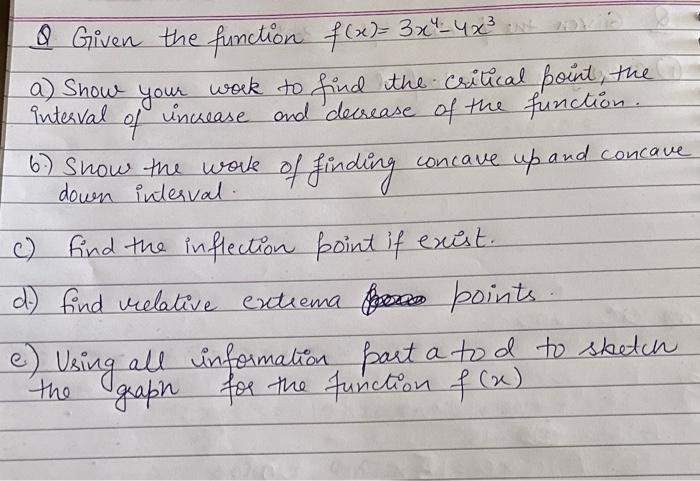 Q Given the function f(x)= 3x⁴-4x³
a) Show your work to find the critical point, the
interval of increase and decrease of the function.
b.) Show the work of finding concave up and concave
down interval.
c) find the inflection point if exist.
d.) find relative extrema points.
e) Using all information part a to d to sketch
the graph for the function f(x)